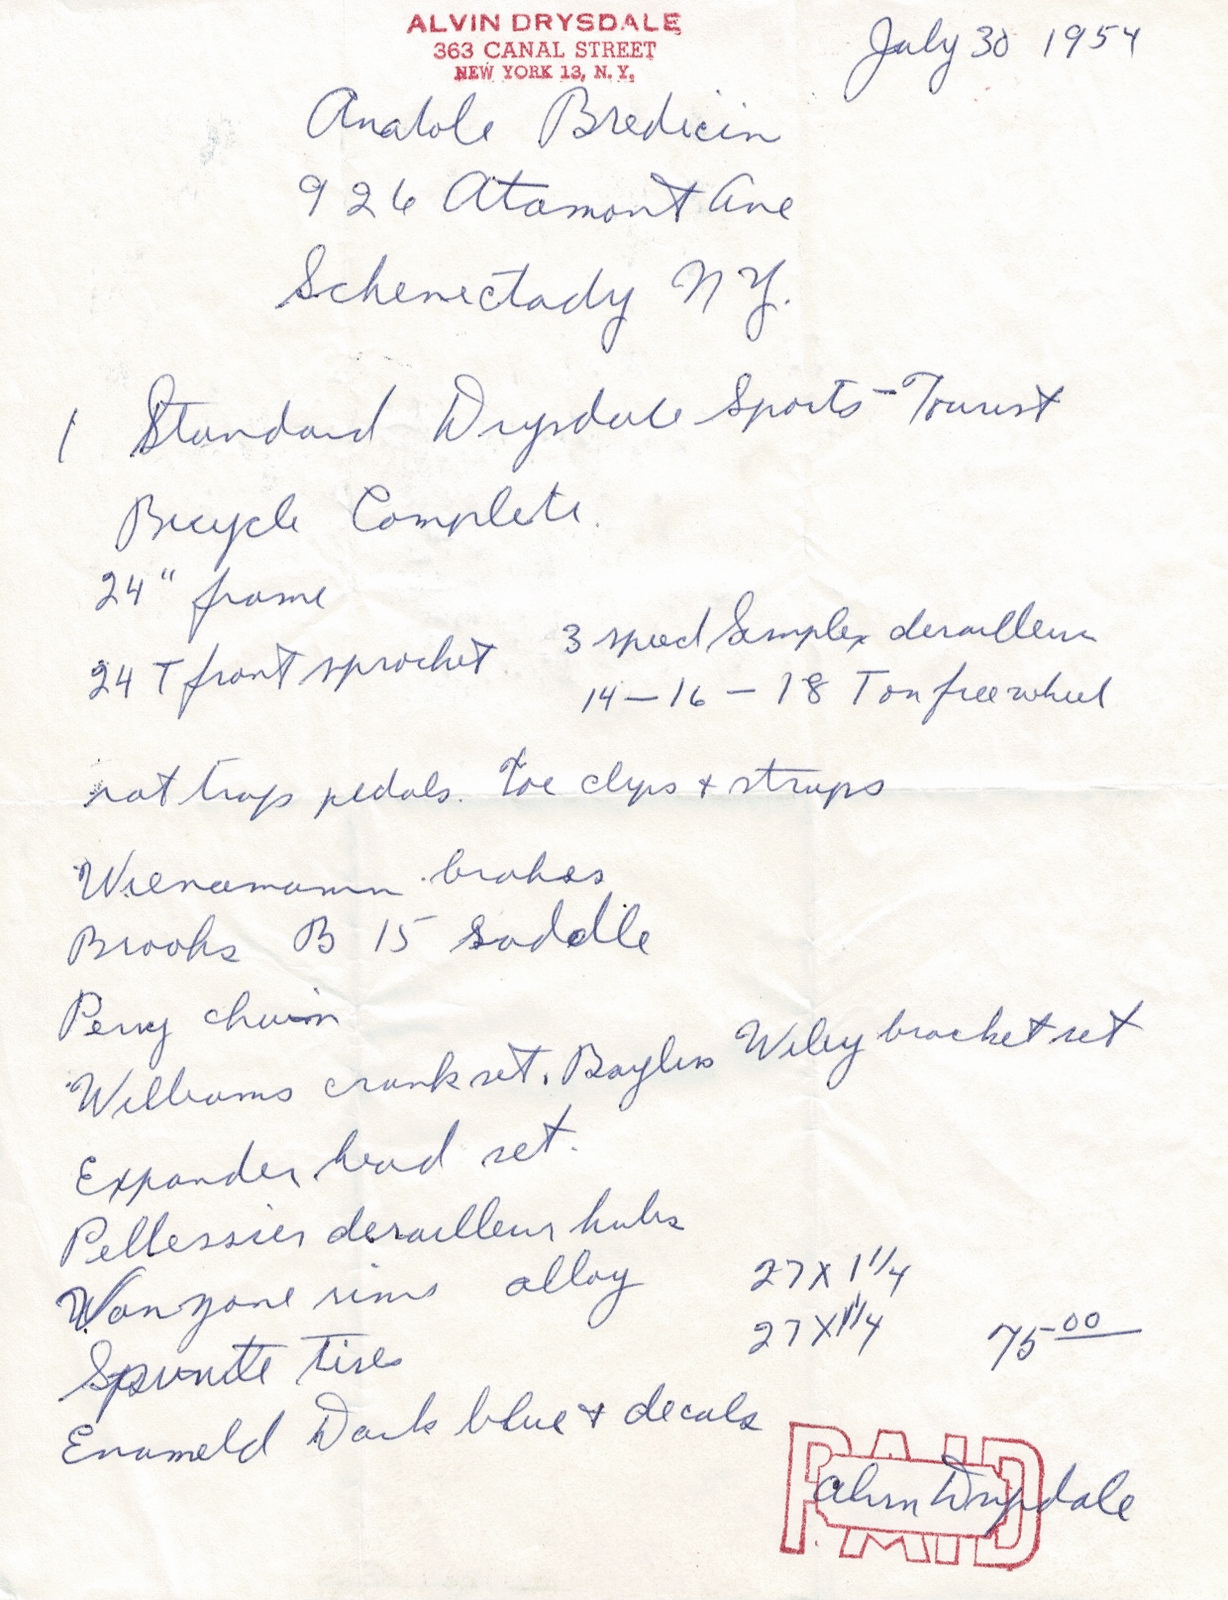 ALVIN DRYSDALE
363 CANAL STREET
NEW YORK 13, N.Y.
July 30 1954
Anatole Bredicin
926 Atamont Ave
Schenectady NY.
1 Standard Drysdale Sports-Tourist
Bicycle Complete.
24" frame
24 T front sprocket
3 speed Simplex derailleur
14-16-18 T on freewheel
rat trap pedals. Toe clips + straps
Wienamann brakes
Brooks B 15 saddle
Perry chain
Williams crank set. Bayliss Wiley bracket set
Expander head set.
Pellessier derailleur hubs
Wanzone rims alloy 27 X 1 1/4
tires 27 X 1 1/4 75 00
Enameld Dark blue + decals
PAID
Alvin Drysdale